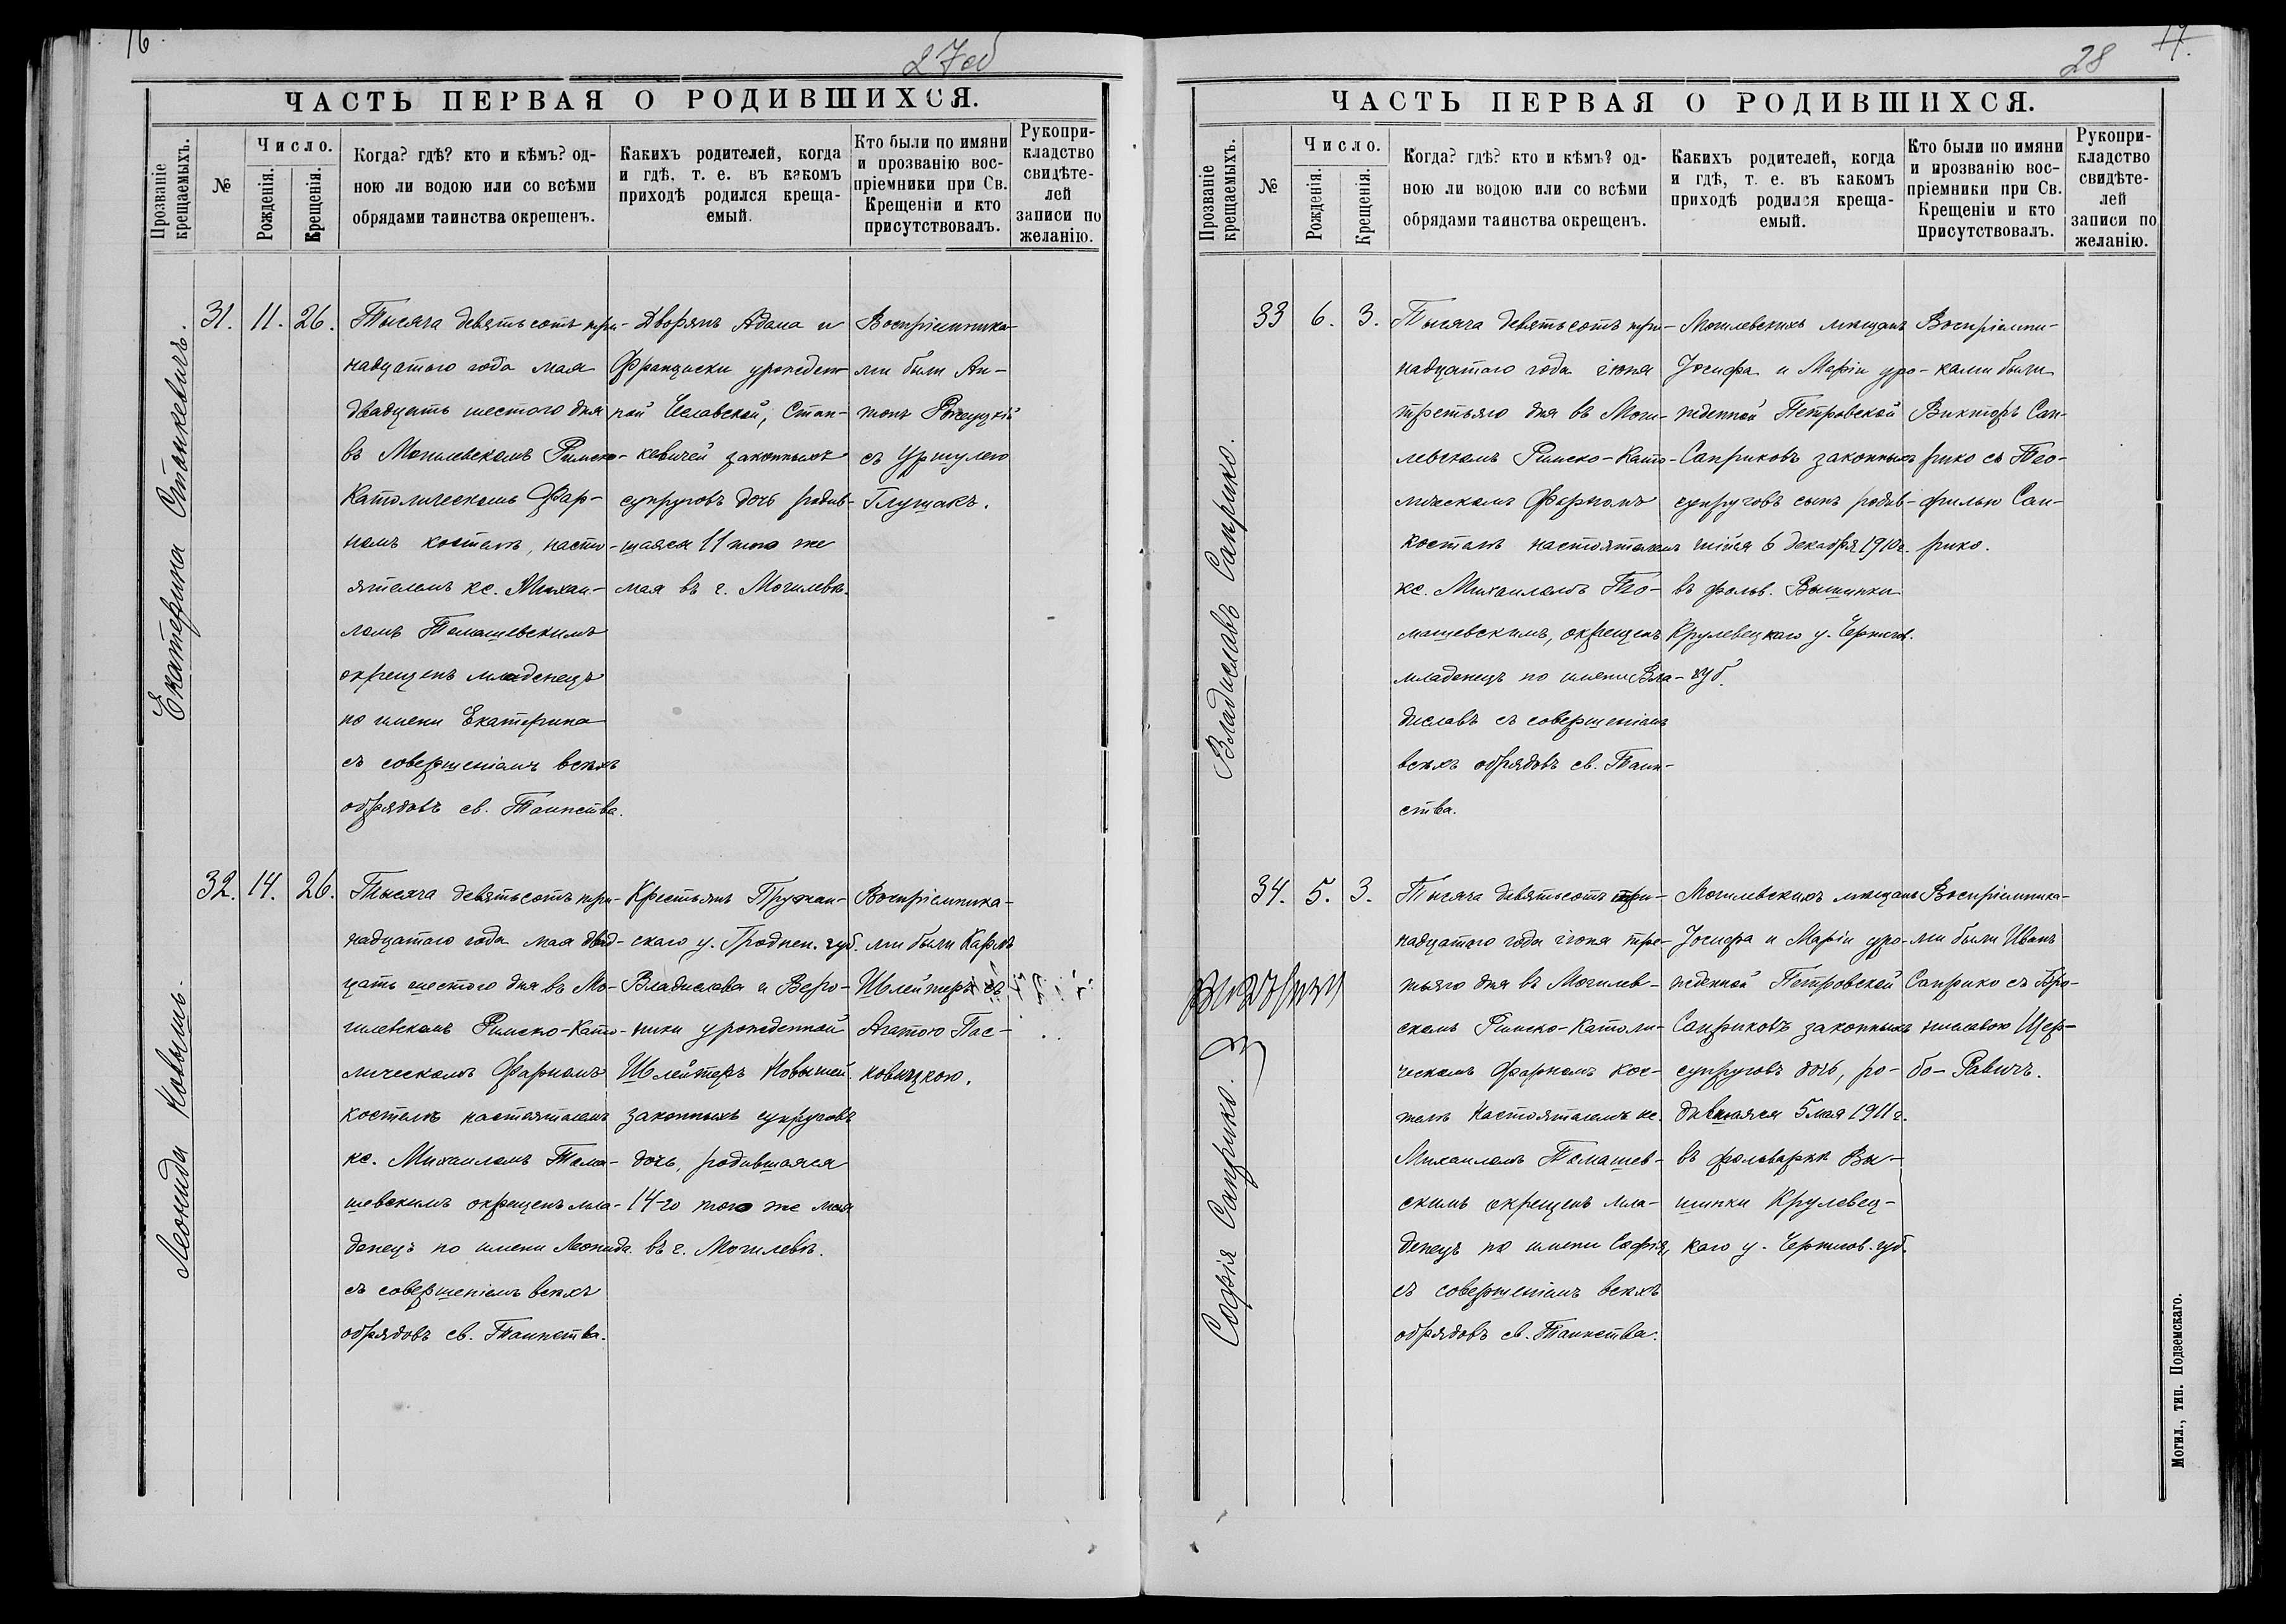 16.
27об
ЧАСТЬ ПЕРВАЯ О РОДИВШИХСЯ.
Прозваніе крещаемыхъ.
№
Число.
Рожденія.
Крещенія.
Когда? гдѣ? кто и кѣмъ? од-
ною ли водою или со всѣми
обрядами таинства окрещенъ.
Какихъ родителей, когда
и гдѣ, т. е. въ какомъ
приходѣ родился креща-
емый.
Кто были по имяни
и прозванію вос-
пріемники при Св.
Крещеніи и кто
присутствовалъ.
Рукопри-
кладство
свидѣте-
лей
записи по
желанію.
Екатерина Станкевичъ.
31.
11.
26.
Тысяча девятьсотъ три-
надцатого года мая
двадцать шестого дня
въ Могилевскомъ Римско-
Католическомъ Фар-
номъ костелѣ, насто-
ятелемъ кс. Михаи-
ломъ Томашевскимъ
окрещенъ младенецъ
по имени Екатерина
съ совершеніемъ всѣхъ
обрядовъ св. Таинства.
Дворянъ Адама и
Франциски урожден-
ной Чеславской, Стан-
кевичей законныхъ
супруговъ дочь родив-
шаяся 11 того же
мая въ г. Могилевѣ.
Воспріемника-
ми были Ан-
тонъ
съ Уршулею
Глущакъ.
Леонида Ковышъ.
32.
14.
26.
Тысяча девятьсотъ три-
надцатого года мая двад-
цать шестого дня въ Мо-
гилевскомъ Римско-Като-
лическомъ Фарномъ
костелѣ настоятелемъ
кс. Михаиломъ Тома-
шевскимъ окрещенъ мла-
денецъ по имени Леонида
съ совершеніемъ всѣхъ
обрядовъ св. Таинства.
Крестьянъ Пружан-
скаго у. Гроднен. губ.
Владислава и Веро-
ники урожденной
Шлейтеръ Ковышей
законныхъ супруговъ
дочь, родившаяся
14-го того же мая
въ г. Могилевѣ.
Воспріемника-
ми были Карлъ
Шлейтеръ съ
Агатою Пас-
ковицкою.
17.
28
ЧАСТЬ ПЕРВАЯ О РОДИВШИХСЯ.
Прозваніе крещаемыхъ.
№
Число.
Рожденія.
Крещенія.
Когда? гдѣ? кто и кѣмъ? од-
ною ли водою или со всѣми
обрядами таинства окрещенъ.
Какихъ родителей, когда
и гдѣ, т. е. въ какомъ
приходѣ родился креща-
емый.
Кто были по имяни
и прозванію вос-
пріемники при Св.
Крещеніи и кто
присутствовалъ.
Рукопри-
кладство
свидѣте-
лей
записи по
желанію.
Владиславъ Саприко.
33
6.
3.
Тысяча девятьсотъ три-
надцатого года іюня
третьяго дня въ Моги-
левскомъ Римско-Като-
лическомъ Фарномъ
костелѣ настоятелемъ
кс. Михаиломъ То-
машевскимъ, окрещенъ
младенецъ по имени Вла-
диславъ съ совершеніемъ
всѣхъ обрядовъ св. Таин-
ства.
Могилевскихъ мѣщанъ
Іосифа и Маріи уро-
жденной Петровской
Саприковъ законныхъ
супруговъ сынъ родив-
шійся 6 декабря 1910г.
въ фольв. Вышинки
Крулевецкаго у. Чернигов.
губ.
Воспріемни-
ками были
Викторъ Сап-
рико съ Тео-
филью Сап-
рико.
Софія Саприко.
34.
5.
3.
Тысяча девятьсотъ три-
надцатого года іюня тре-
тьяго дня въ Могилев-
скомъ Римско-Католи-
ческомъ Фарномъ кос-
телѣ настоятелемъ кс.
Михаиломъ Томашев-
скимъ окрещенъ мла-
денецъ по имени Софія,
съ совершеніемъ всѣхъ
обрядовъ св. Таинства.
Могилевскихъ мѣщанъ
Іосифа и Маріи уро-
жденной Петровской
Саприковъ законныхъ
супруговъ дочь, ро-
дившаяся 5 мая 1911г.
въ фольваркѣ Вы-
шинки Крулевец-
каго у. Чернигов. губ.
Воспріемника-
ми были Иванъ
Саприко съ Бро-
ниславою Щер-
бо-Равичъ.
Могил., тип. Подземскаго.